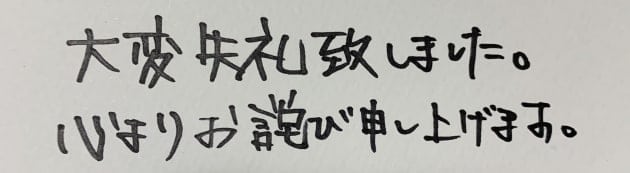 大変失礼致しました。
心よりお詫び申し上げます。